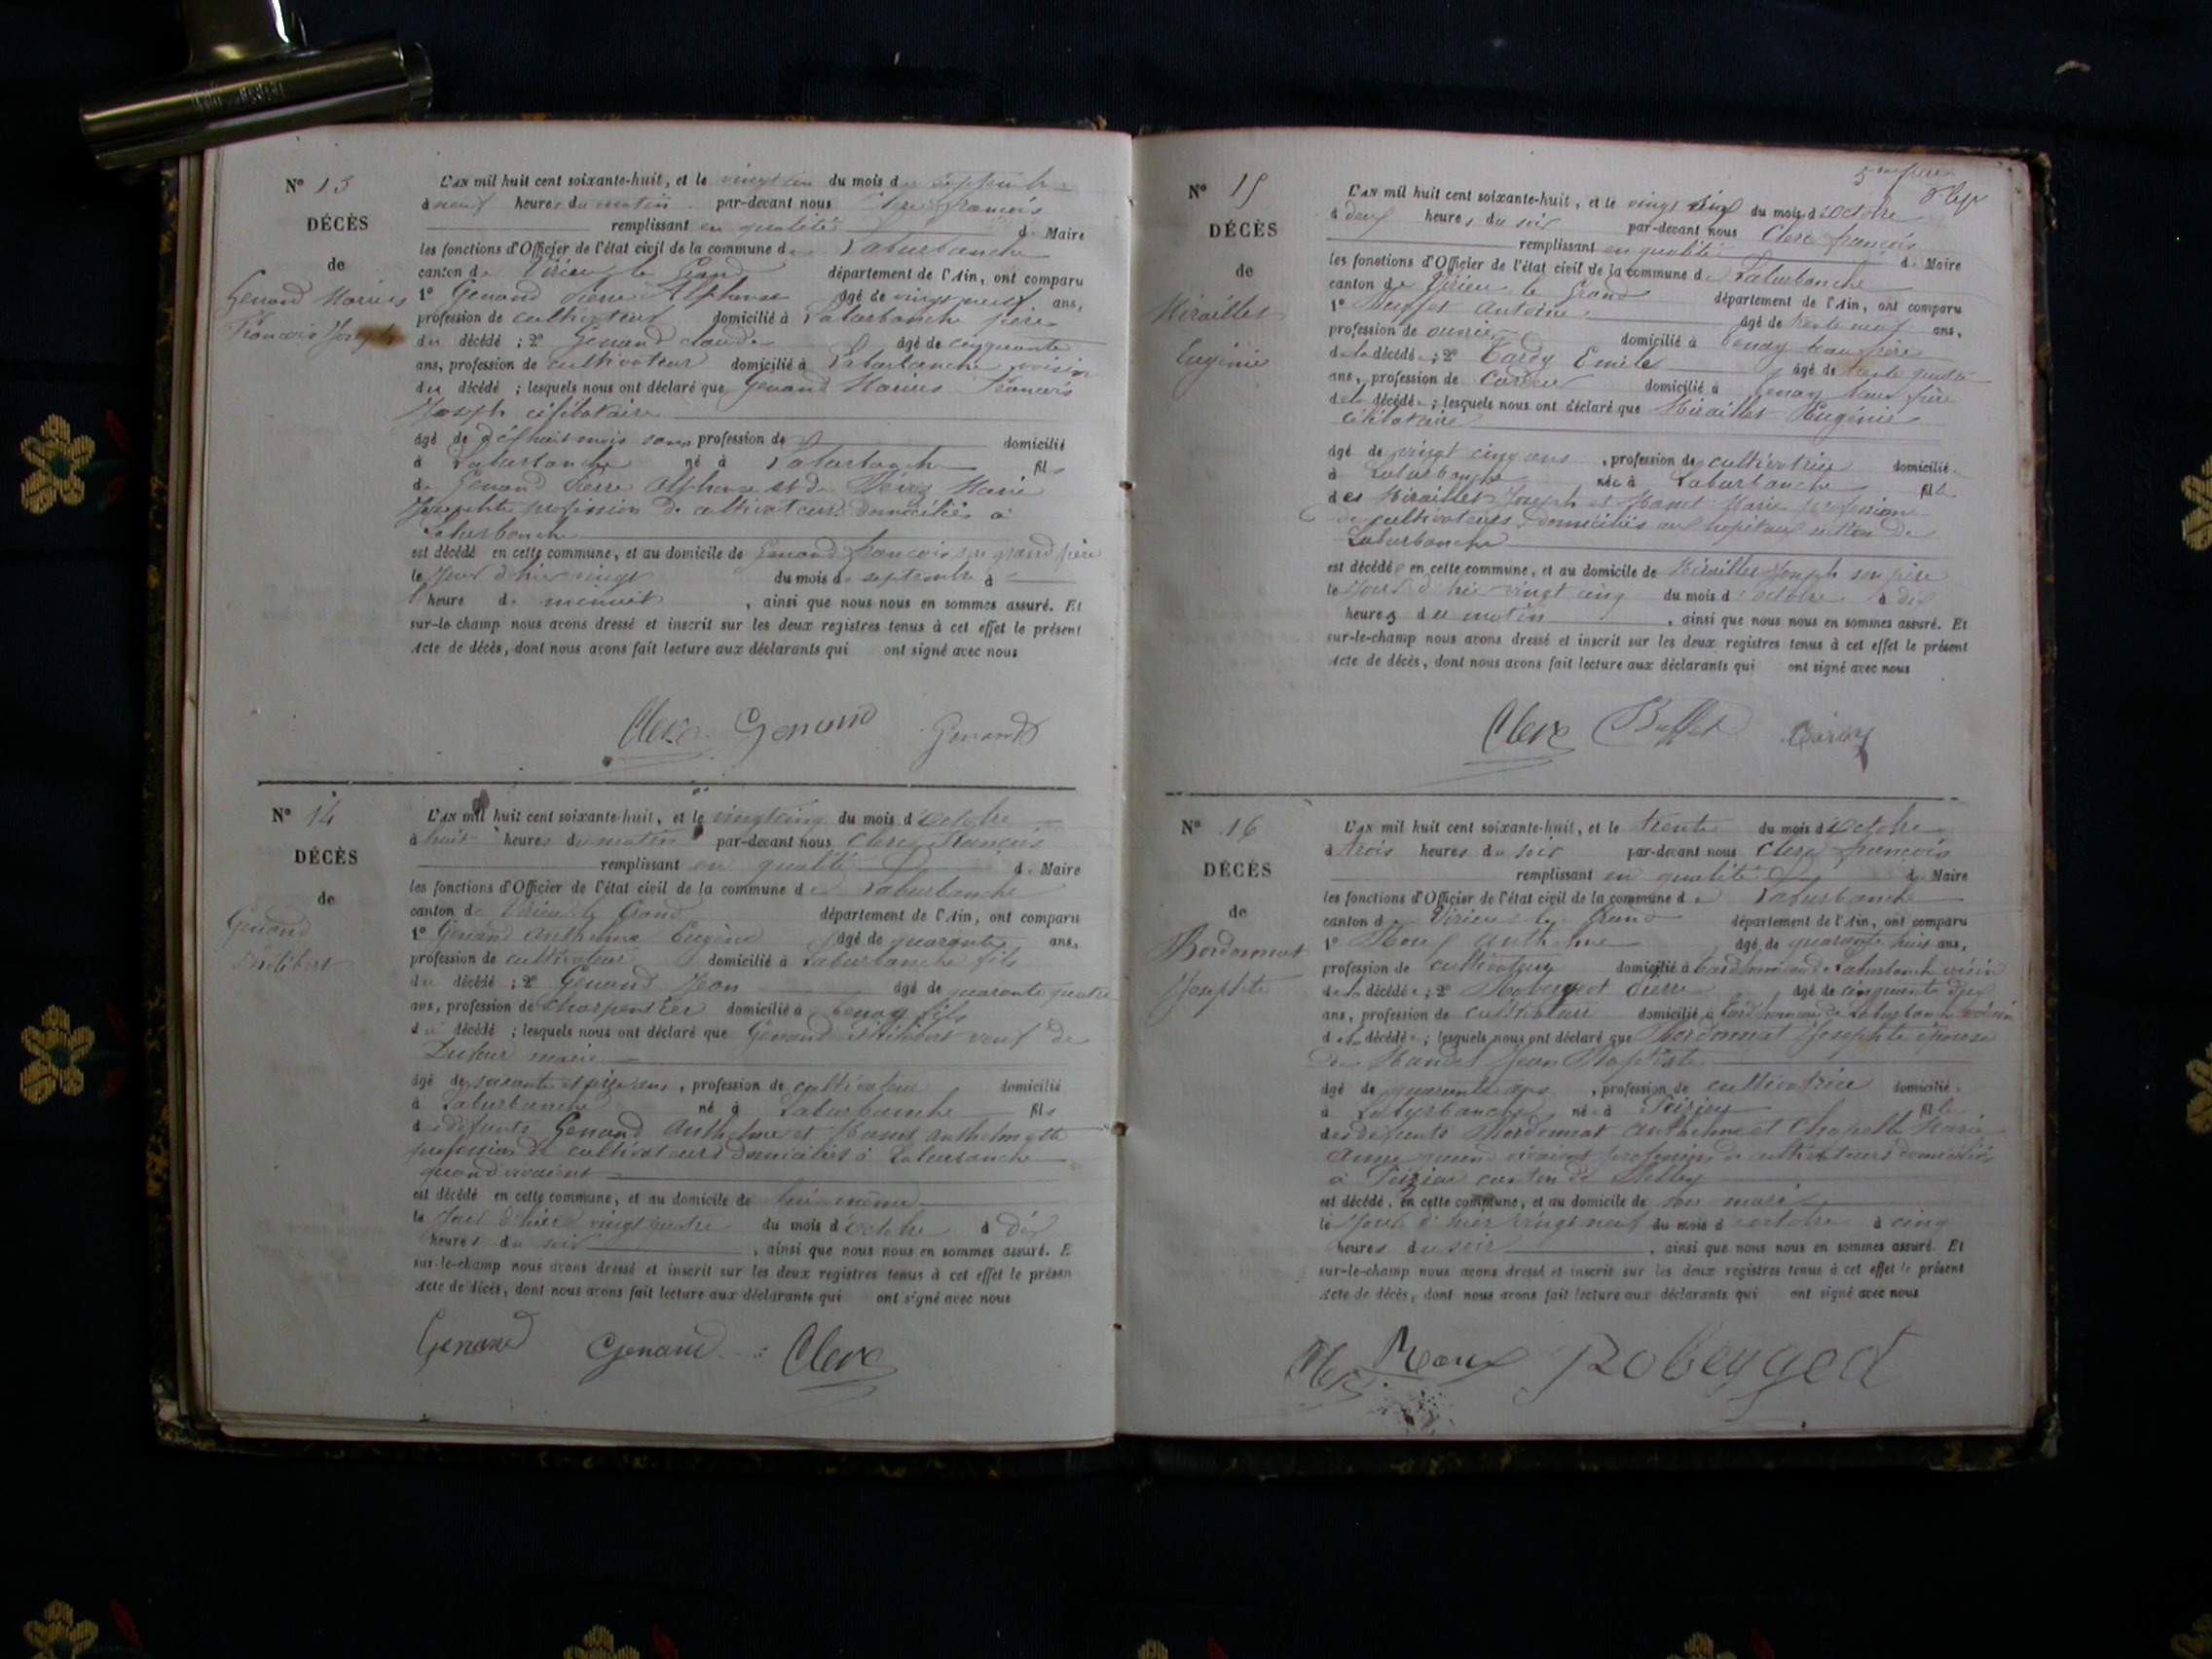 N° 13
DÉCÈS
de
Genand Marius
François Joseph
L'AN mil huit cent soixante-huit, et le vingt un du mois de septembre
à neuf heures du matin par-devant nous Clerc françois
remplissant en qualité de Maire
les fonctions d'Officier de l'état civil de la commune de Laburbanche
canton de Virieu le Grand département de l'Ain, ont comparu
1° Genand Pierre Alphonse âgé de vingt neuf ans,
profession de cultivateur domicilié à Laburbanche père
du décédé ; 2° Genand claude âgé de cinquante
ans, profession de cultivateur domicilié à Laburbanche voisin
du décédé ; lesquels nous ont déclaré que Genand Marius François
Joseph célibataire
âgé de dix huit mois sans profession de domicilié
à Laburbanche né à Laburbanche fils
de Genand Pierre Alphonse et de Marie
Josephte profession de cultivateurs domiciliés à
Laburbanche
est décédé en cette commune, et au domicile de Genand françois son grand père
le Jour d'hier vingt du mois de septembre à
l'heure de minuit , ainsi que nous nous en sommes assuré. Et
sur-le champ nous avons dressé et inscrit sur les deux registres tenus à cet effet le présent
Acte de décès, dont nous avons fait lecture aux déclarants qui ont signé avec nous
Clerc Genand Genand
N° 14
DÉCÈS
de
Genand
Philibert
L'AN mil huit cent soixante-huit, et le vingt cinq du mois d'Octobre
à huit heures du matin par-devant nous Clerc François
remplissant en qualité de Maire
les fonctions d'Officier de l'état civil de la commune de Laburbanche
canton de Virieu le Grand département de l'Ain, ont comparu
1° Genand Anthelme Eugène âgé de quarante ans,
profession de cultivateur domicilié à Laburbanche fils
du décédé ; 2° Genand Jean âgé de quarante quatre
ans, profession de Charpentier domicilié à tenay fils
du décédé ; lesquels nous ont déclaré que Genand Philibert veuf de
Dufour marie
âgé de soixante et seize ans , profession de cultivateur domicilié
à Laburbanche né à Laburbanche fils
de défunts Genand Anthelme et Anthelmette
profession de cultivateurs domiciliés à Laburbanche
quand vivaient
est décédé en cette commune, et au domicile de lui même
le Jour d'hier vingt quatre du mois d'Octobre à dix
heures du soir , ainsi que nous nous en sommes assuré. E
sur-le-champ nous avons dressé et inscrit sur les deux registres tenus à cet effet le présen
Acte de décès, dont nous avons fait lecture aux déclarants qui ont signé avec nous
Genand Genand Clerc
N° 15
DÉCÈS
de
Miraillet
Eugénie
L'AN mil huit cent soixante-huit, et le vingt six du mois d'Octobre
à deux heures du soir par-devant nous Clerc françois
remplissant en qualité de Maire
les fonctions d'Officier de l'état civil de la commune de Laburbanche
canton de Virieu le Grand département de l'Ain, ont comparu
1° Buffet Antoine âgé de trente neuf ans,
profession de ouvrier domicilié à tenay beau frère
de la décédée ; 2° Tardy Emile âgé de trente quatre
ans, profession de Cardeur domicilié à tenay beau frère
de la décédée ; lesquels nous ont déclaré que Miraillet Eugénie
Célibataire
âgé de vingt cinq ans , profession de cultivatrice domicilié
à Laburbanche née à Laburbanche fille
des Miraillet Joseph et Marie profession
de cultivateurs, domiciliés aux hopitaux section de
Laburbanche
est décédée en cette commune, et au domicile de Miraillet Joseph son père
le Jour d'hier vingt cinq du mois d'octobre à dix
heures du matin , ainsi que nous nous en sommes assuré. Et
sur-le-champ nous avons dressé et inscrit sur les deux registres tenus à cet effet le présent
Acte de décès, dont nous avons fait lecture aux déclarants qui ont signé avec nous
Clerc Buffet Tardy
N° 16
DÉCÈS
de
Bordonnat
Josephte
L'AN mil huit cent soixante-huit, et le trente du mois d'Octobre
à trois heures du soir par-devant nous Clerc françois
remplissant en qualité de Maire
les fonctions d'Officier de l'état civil de la commune de Laburbanche
canton de Virieu le grand département de l'Ain, ont comparu
1° Roux anthelme âgé de quarante huit ans,
profession de cultivateur domicilié à de Laburbanche voisin
de la décédée ; 2° Robeyged Pierre âgé de cinquante deux
ans, profession de cultivateur domicilié à de Laburbanche voisin
de la décédée ; lesquels nous ont déclaré que Bordonnat Josephte Epouse
de Jean Baptiste
âgé de quarante ans , profession de cultivatrice domicilié
à Laburbanche né à Peizieu fille
des défunts Bordonnat anthelme et Chapelle Marie
Anne quand vivaient profession de cultivateurs domiciliés
à Peizieu canton de Belley
est décédé en cette commune, et au domicile de son mari
le Jour d'hier vingt neuf du mois d'octobre à cinq
heures du soir , ainsi que nous nous en sommes assuré. Et
sur-le-champ nous avons dressé et inscrit sur les deux registres tenus à cet effet le présent
Acte de décès, dont nous avons fait lecture aux déclarants qui ont signé avec nous
Clerc Roux Robeyged